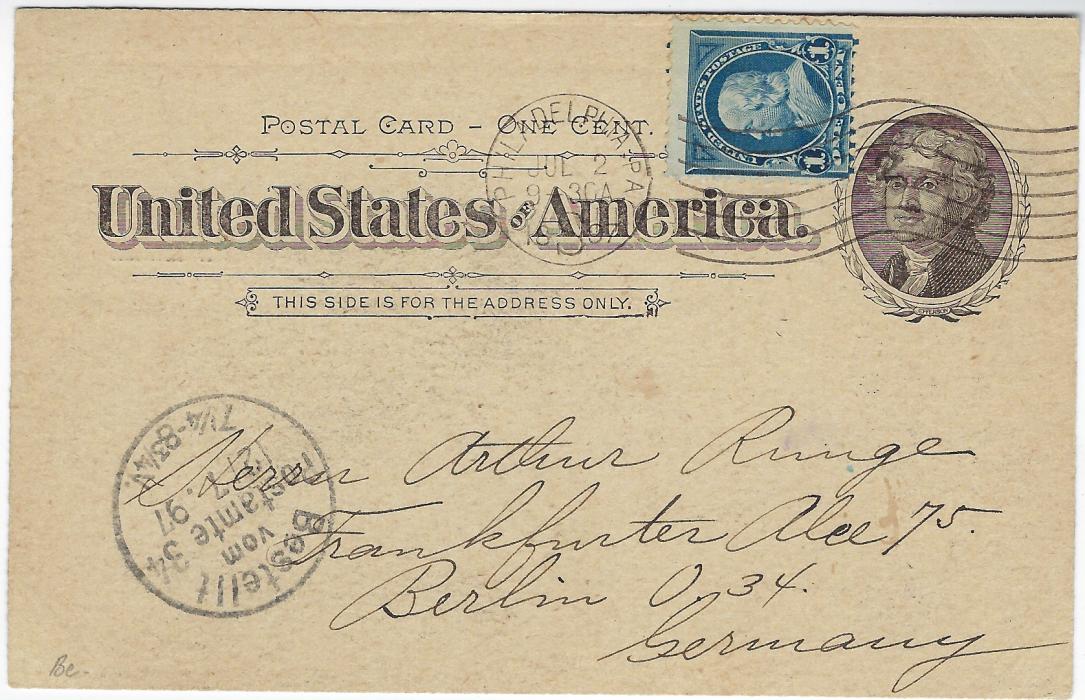 POSTAL CARD – ONE CENT.
United States of America.
THIS SIDE IS FOR THE ADDRESS ONLY.
UNITED STATES POSTAGE
1 ONE CENT 1
PHILADELPHIA, PA
JUL 2
9 30A
JEFFERSON
Herrn Arthur Runge
Frankfurter Alee 75.
Berlin O. 34.
Germany
Bestellt
vom
Postamte 34
7. 97
7¼-8¾
Be.